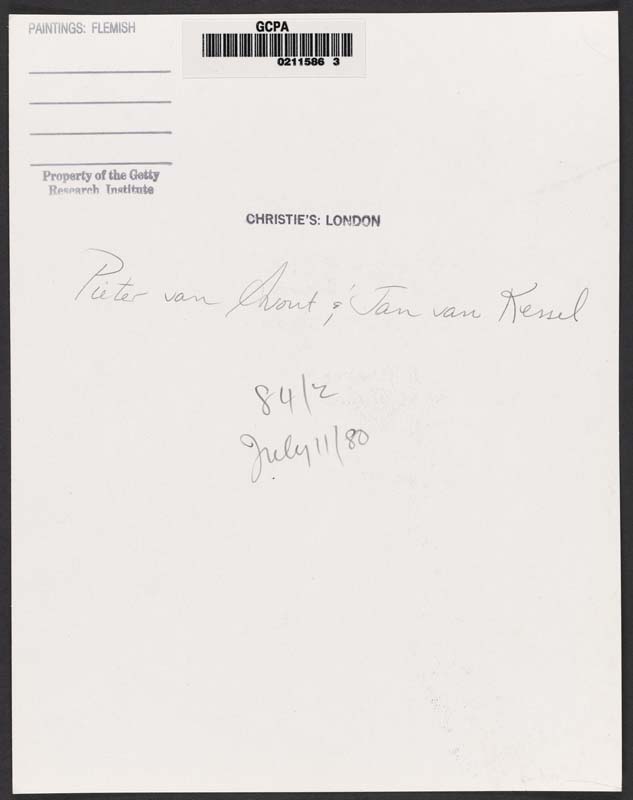 PAINTINGS: FLEMISH
GCPA
0211586 3
Property of the Getty
Research Institute
CHRISTIE'S: LONDON
Pieter van Avont & Jan van Kessel
84/2
July 11/80